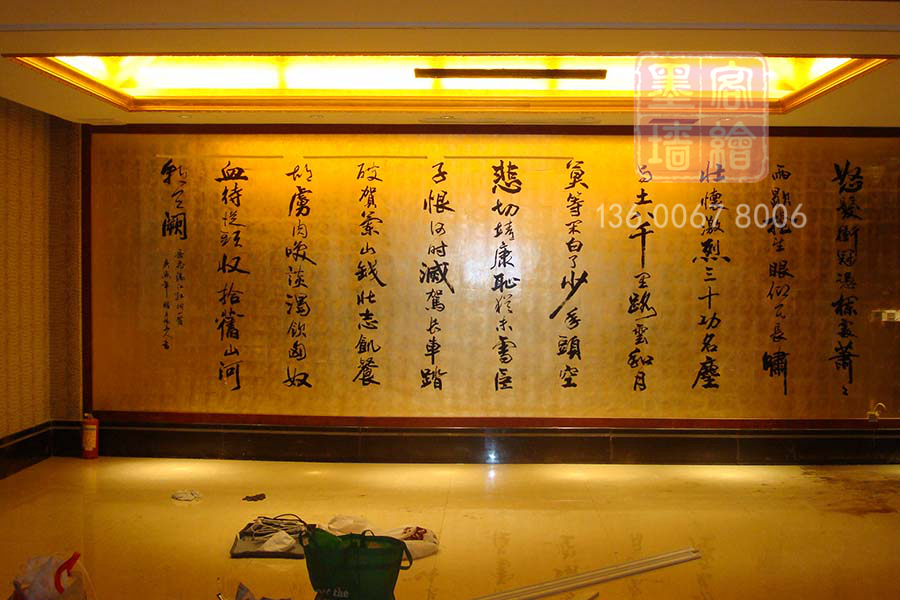 怒髮衝冠憑欄處蕭々
雨歇抬望眼仰天長嘯
壯懷激烈三十功名塵
与土八千里路雲和月
莫等閑白了少年頭空
悲切靖康恥猶未雪臣
子恨何時滅駕長車踏
破賀蘭山缺壯志飢餐
胡虜肉笑談渴飲匈奴
血待從頭收拾舊山河
朝天闕
岳飛滿江紅詞一首
墨客
墙繪
136 0067 8006